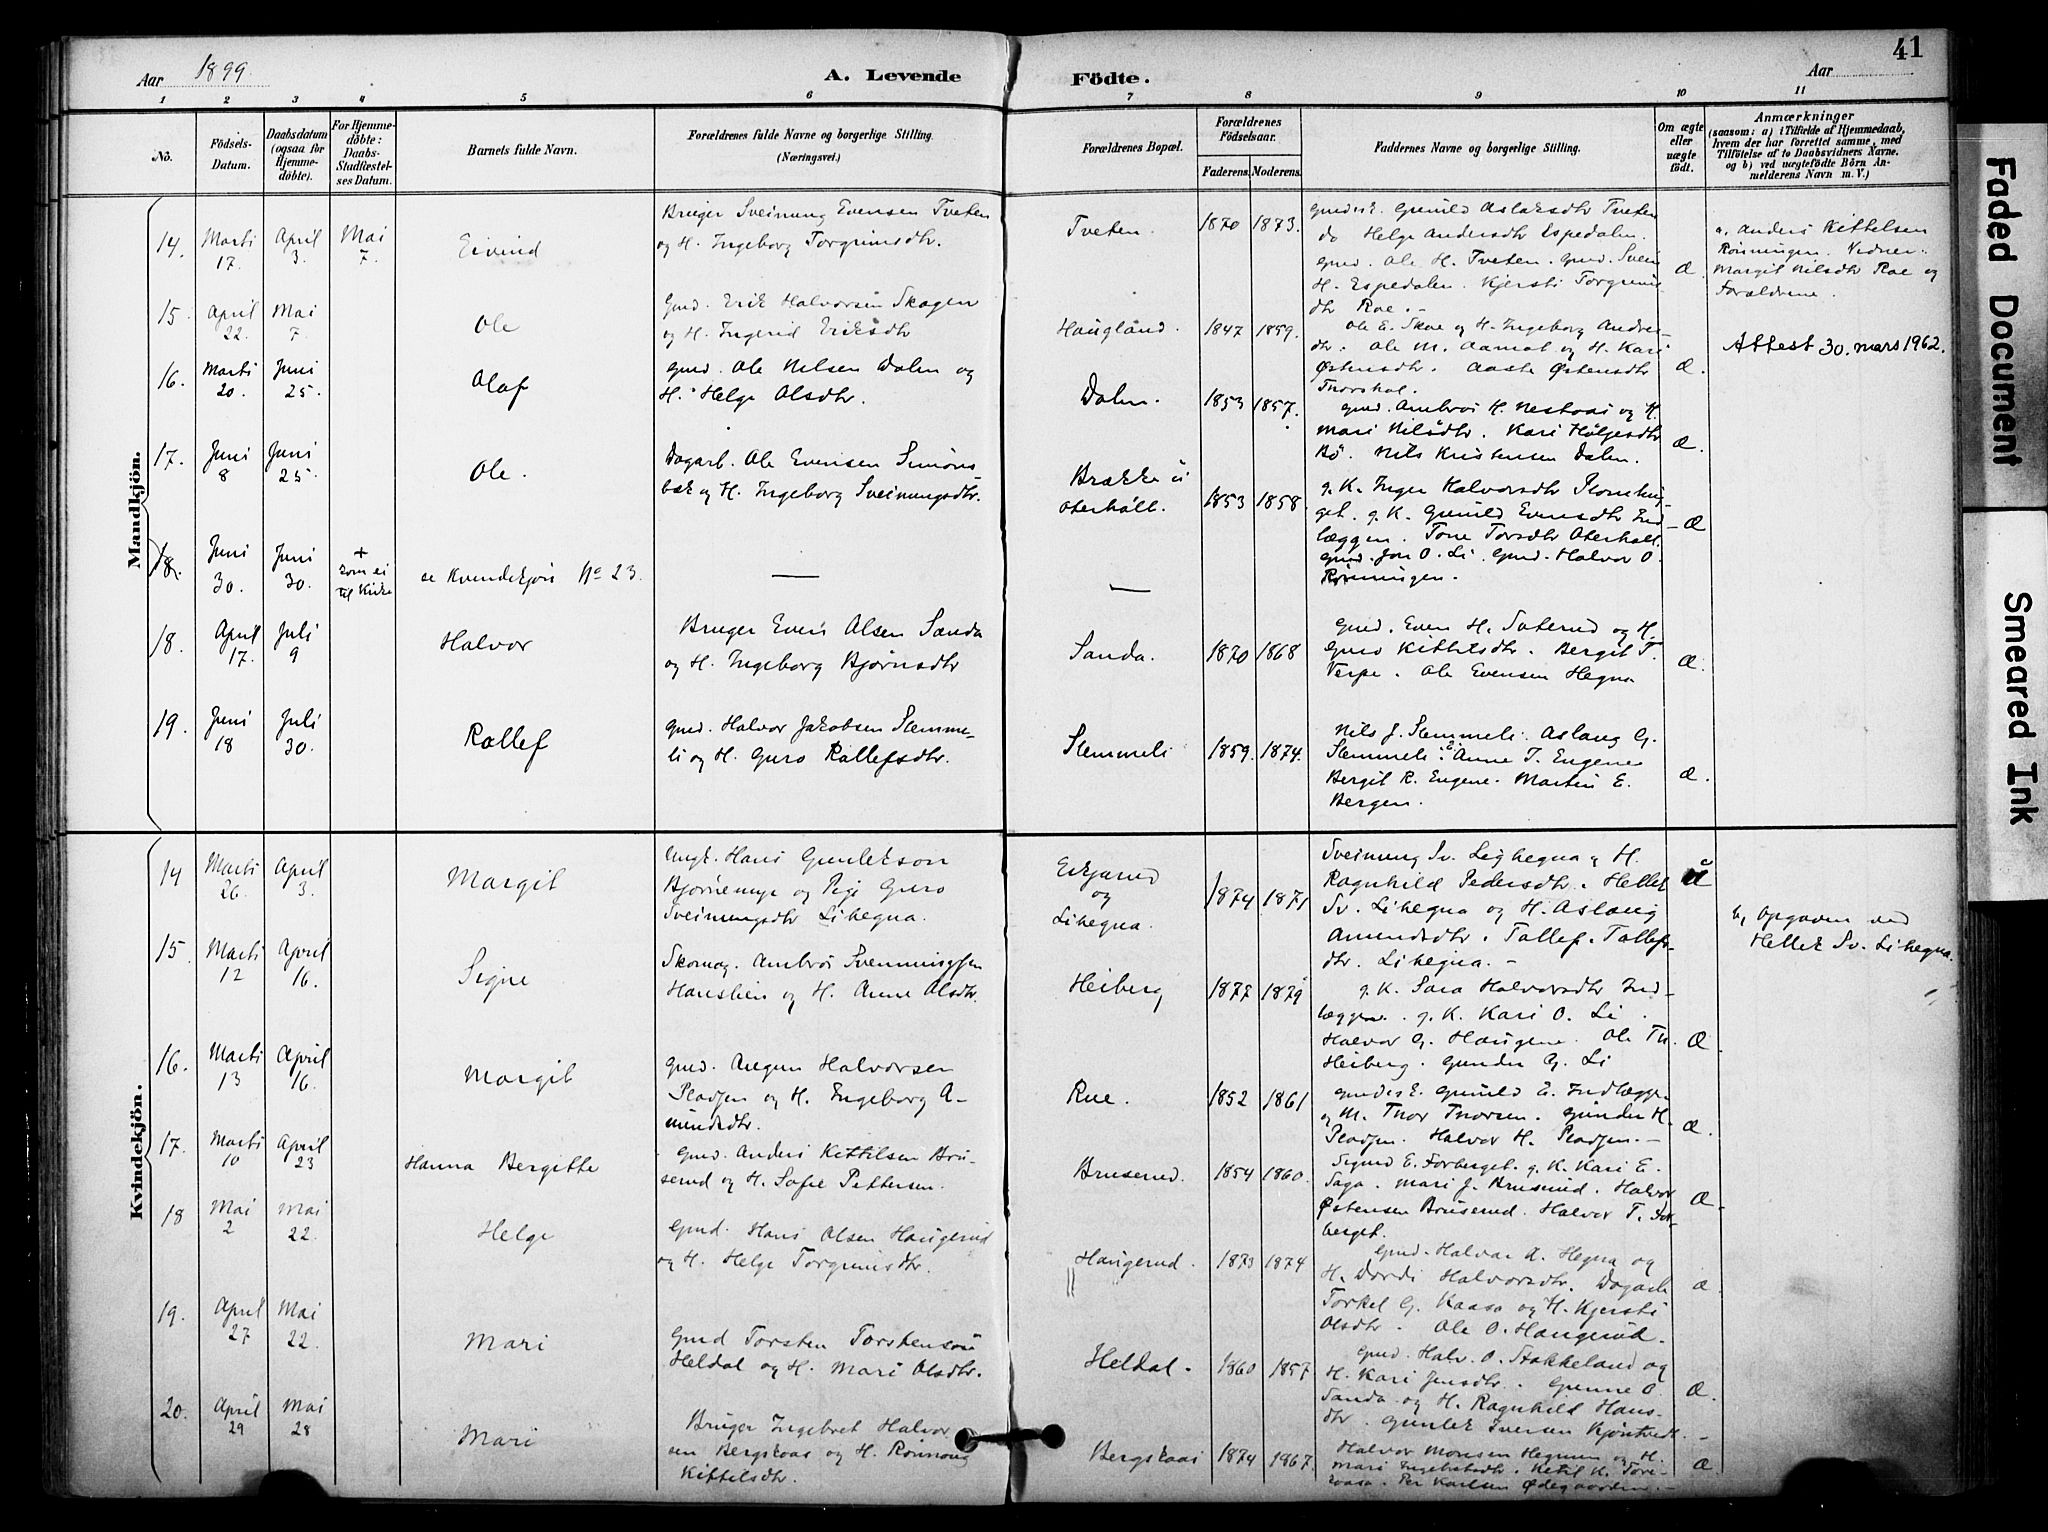 Aar 1899.
A. Levende
Födte.
Aar
41
1 2 3 4 5 6 7 8 9 10 11
No.
Födsels-
Datum.
Daabsdatum
(ogsaa for
Hjemme-
döbte).
For Hjemme-
döbte:
Daabs-
Stadfæstel-
ses Datum.
Barnets fulde Navn.
Forældrenes fulde Navne og borgerlige Stilling.
(Næringsvei.)
Forældrenes Bopæl.
Forældrenes
Födselsaar.
Faderens. Moderens.
Faddernes Navne og borgerlige Stilling.
Om ægte
eller
uægte
födt.
Anmærkninger
(saasom: a) i Tilfælde af Hjemmedaab,
hvem der har forrettet samme, med
Tilföielse af to Daabsvidners Navne.
og b) ved uægtefödte Börn An-
melderens Navn m. V.)
Mandkjön.
14.
Marti
17.
April
3.
Mai
7.
Eivind
Bruger Sveinung Evensen Tveten
og H. Ingeborg Torgrimsdtr.
Tveten.
1870 1873.
Gmdesk. Gunild Aslaksdtr Tveten
do Helge Andersdtr Espedalen.
Gmd. Ole H. Tveten. Gmd. Svein
H. Espedalen. Kjersti Torgrims-
dtr Roe.
Æ.
a, Anders Kittelsen
Rönningen. Vidner:
Margit Nilsdtr Roe og
Forældrene.
15.
April
22.
Mai
7.
Ole
Gmd. Erik Halvorsen Skogen
og H. Ingerid Eriksdtr
Haugland.
1847 1859.
Ole E. Skoe og H. Ingeborg Anders-
dtr. Ole M. Aamot og H. Kari
Østensdtr. Aaste Østensdtr
Thorshol.
Æ.
Attest 30. mars 1962.
16.
Marti
20.
Juni
25.
Olaf
Gmd. Ole Nilsen Dalen og
H. Helge Olsdtr.
Dalen.
1853 1857.
Gmd. Ambros H. Nestaas og H.
Mari Nilsdtr. Kari Hølgesdtr
Bø. Nils Kristensen Dalen.
Æ
17.
Juni
8
Juni
25.
Ole.
Dagarb. Ole Evensen Simons-
bæk og H. Ingeborg Sveinungsdtr.
Brække u
Oterholt.
1853 1858.
g. K. Inger Halvorsdtr
g. K. Gunild Evensdtr Ind-
læggen. Tone Torsdtr Oterholt.
Gmd. Jon O. Li. Gmd. Halvor O.
Rönningen.
Æ
18.
Juni
30.
Juni
30.
+
som ei
til Kirke
se Kvindekjön No 23.
18.
April
17.
Juli
9
Halvor
Bruger Even Olsen Sanda
og H. Ingeborg Bjørnsdtr
Sanda.
1870 1868
Gmd. Even H. Saterud og H.
Guro Kittelsdtr. Bergit T.
Verpe. Ole Evensen Hegna
Æ.
19.
Juni
18
Juli
30.
Rollef
Gmd. Halvor Jakobsen Slemme-
li og H. Guro Rollefsdtr.
Slemmeli
1859. 1874.
Nils J. Slemmeli. Aslaug G.
Slemmeli. Anne T. Eugene
Bergit R. Eugene. Martin E.
Bergen.
Æ.
Kvindekjön.
14
Marti
26.
April
3.
Margit
Ungk. Hans Gunlekson
Bjørnemyr og Pige Guro
Sveinungsdtr Lihegna.
Eikjarud
og
Lihegna.
1874 1871
Sveinung Sv. Lihegna og H.
Ragnhild Pedersdtr. Hellek
Sv. Lihegna og H. Aslaug
Amundsdtr. Tallef Tallefs-
dtr. Lihegna.
b, Opgaven ved
Hellek Sv. Lihegna.
15
Marti
12
April
16.
Signe
Skomag. Ambros Svennungsen
Hanslien og H. Anne Olsdtr.
Heiberg
1877 1879
g. K. Sara Halvorsdtr Ind-
læggen. g. K. Kari O. Li.
Halvor G. Haugene. Ole Th.
Heiberg. Gunder G. Li
Æ.
16.
Marti
13
April
16.
Margit
Gmd. Aagun Halvorsen
Pladsen og H. Ingeborg A-
mundsdtr.
Rue.
1852 1861
Gmdesk. Gunild E. Indlægge.
og M. Thor Thorsen. Gunder H.
Pladsen. Halvor H. Pladsen.
Æ.
17.
Marti
10
April
23
Hanna Bergitte
Gmd. Anders Kittilsen Bru-
serud og H. Sofie Pettersen.
Bruserud.
1854 1860.
Sigurd E. Forberget. g. K. Kari E.
Saga. Mari J. Bruserud. Halvor
Østensen Bruserud. Halvor T.
berget.
Æ.
18
Mai
2
Mai
22.
Helge
Gmd. Hans Olsen Haugerud
og H. Helge Torgrimsdtr.
Haugerud.
1873 1874
Gmd. Halvor A. Hegna og
H. Dordi Halvorsdtr. Dagarb
Torkel G. Kaasa og H. Kjersti
Olsdtr. Ole O. Haugerud.
Æ.
19.
April
27
Mai
22.
Mari
Gmd Torsten Torstenson
Heldal og H. Mari Olsdtr.
Heldal.
1860 1857
Gmd. Halv. O. Stokkeland og
H. Kari Jensdtr. Gunne O.
Sanda og H. Ragnhild Hans-
dtr. Gunlek Iversen
Æ.
20.
April
29
Mai
28
Mari
Bruger Ingebret Halvor
sen Bergskaas og H. Rønnoug
Kittelsdtr.
Bergskaas
1874 1867.
Halvor Monsen Hegnen og H.
Mari Ingebretsdtr. Ketil K. Tore-
kaasa. Per Karlsen Ødegaarden.
Æ.
Faded Document
Smeared Ink